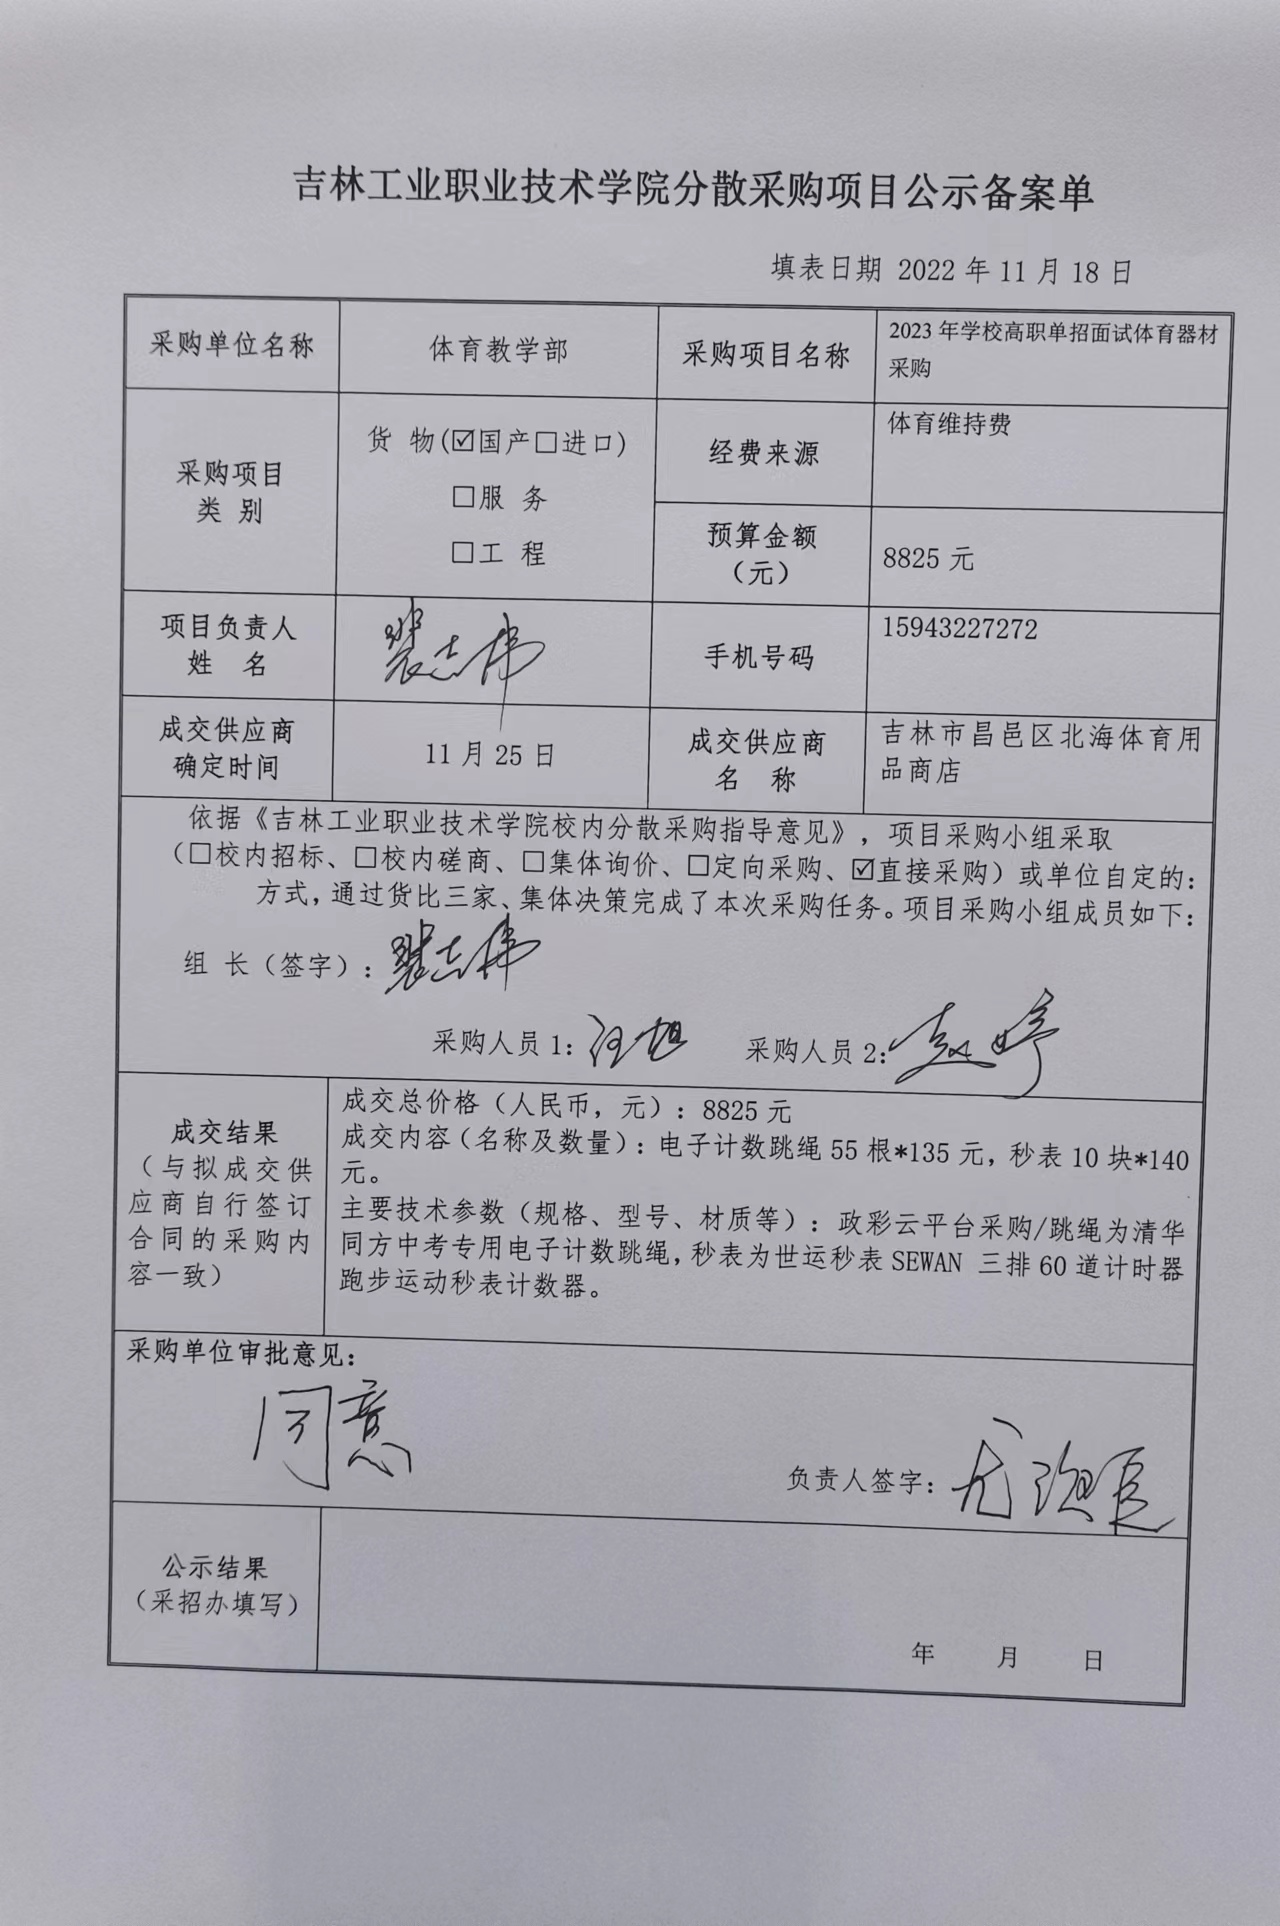 吉林工业职业技术学院分散采购项目公示备案单
填表日期 2022 年 11 月 18 日
采购单位名称
体育教学部
采购项目名称
2023 年学校高职单招面试体育器材
采购
采购项目
类 别
货 物(☑国产□进口)
□服 务
□工 程
经费来源
体育维持费
预算金额
（元）
8825 元
项目负责人
姓 名
裴志伟
手机号码
15943227272
成交供应商
确定时间
11 月 25 日
成交供应商
名 称
吉林市昌邑区北海体育用
品商店
依据《吉林工业职业技术学院校内分散采购指导意见》，项目采购小组采取
（□校内招标、□校内磋商、□集体询价、□定向采购、☑直接采购）或单位自定的：
方式，通过货比三家、集体决策完成了本次采购任务。项目采购小组成员如下：
组 长（签字）：裴志伟
采购人员 1：汪旭 采购人员 2：赵婷
成交结果
（与拟成交供
应商自行签订
合同的采购内
容一致）
成交总价格（人民币，元）：8825 元
成交内容（名称及数量）：电子计数跳绳 55 根*135 元，秒表 10 块*140
元。
主要技术参数（规格、型号、材质等）：政彩云平台采购/跳绳为清华
同方中考专用电子计数跳绳，秒表为世运秒表 SEWAN 三排 60 道计时器
跑步运动秒表计数器。
采购单位审批意见：
同意
负责人签字：
公示结果
（采招办填写）
年 月 日